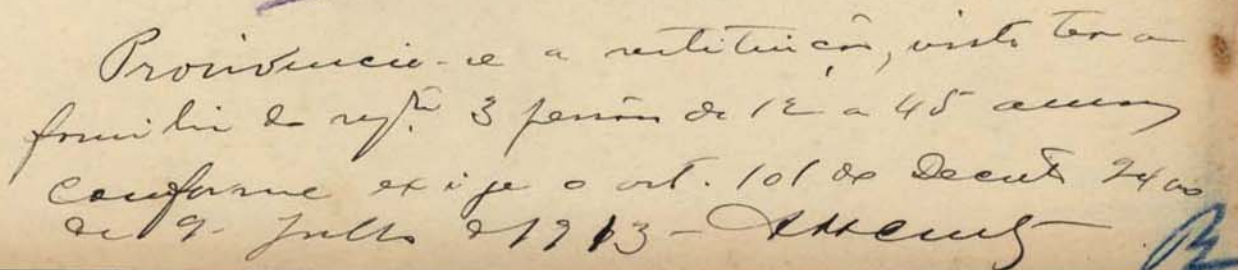 Providencie-se a restituição, visto ter a
familia do reqte. 3 pessoas de 12 a 45 annos
conforme exige o art. 101 do Decreto 2400
de 9 Julho de 1913 -